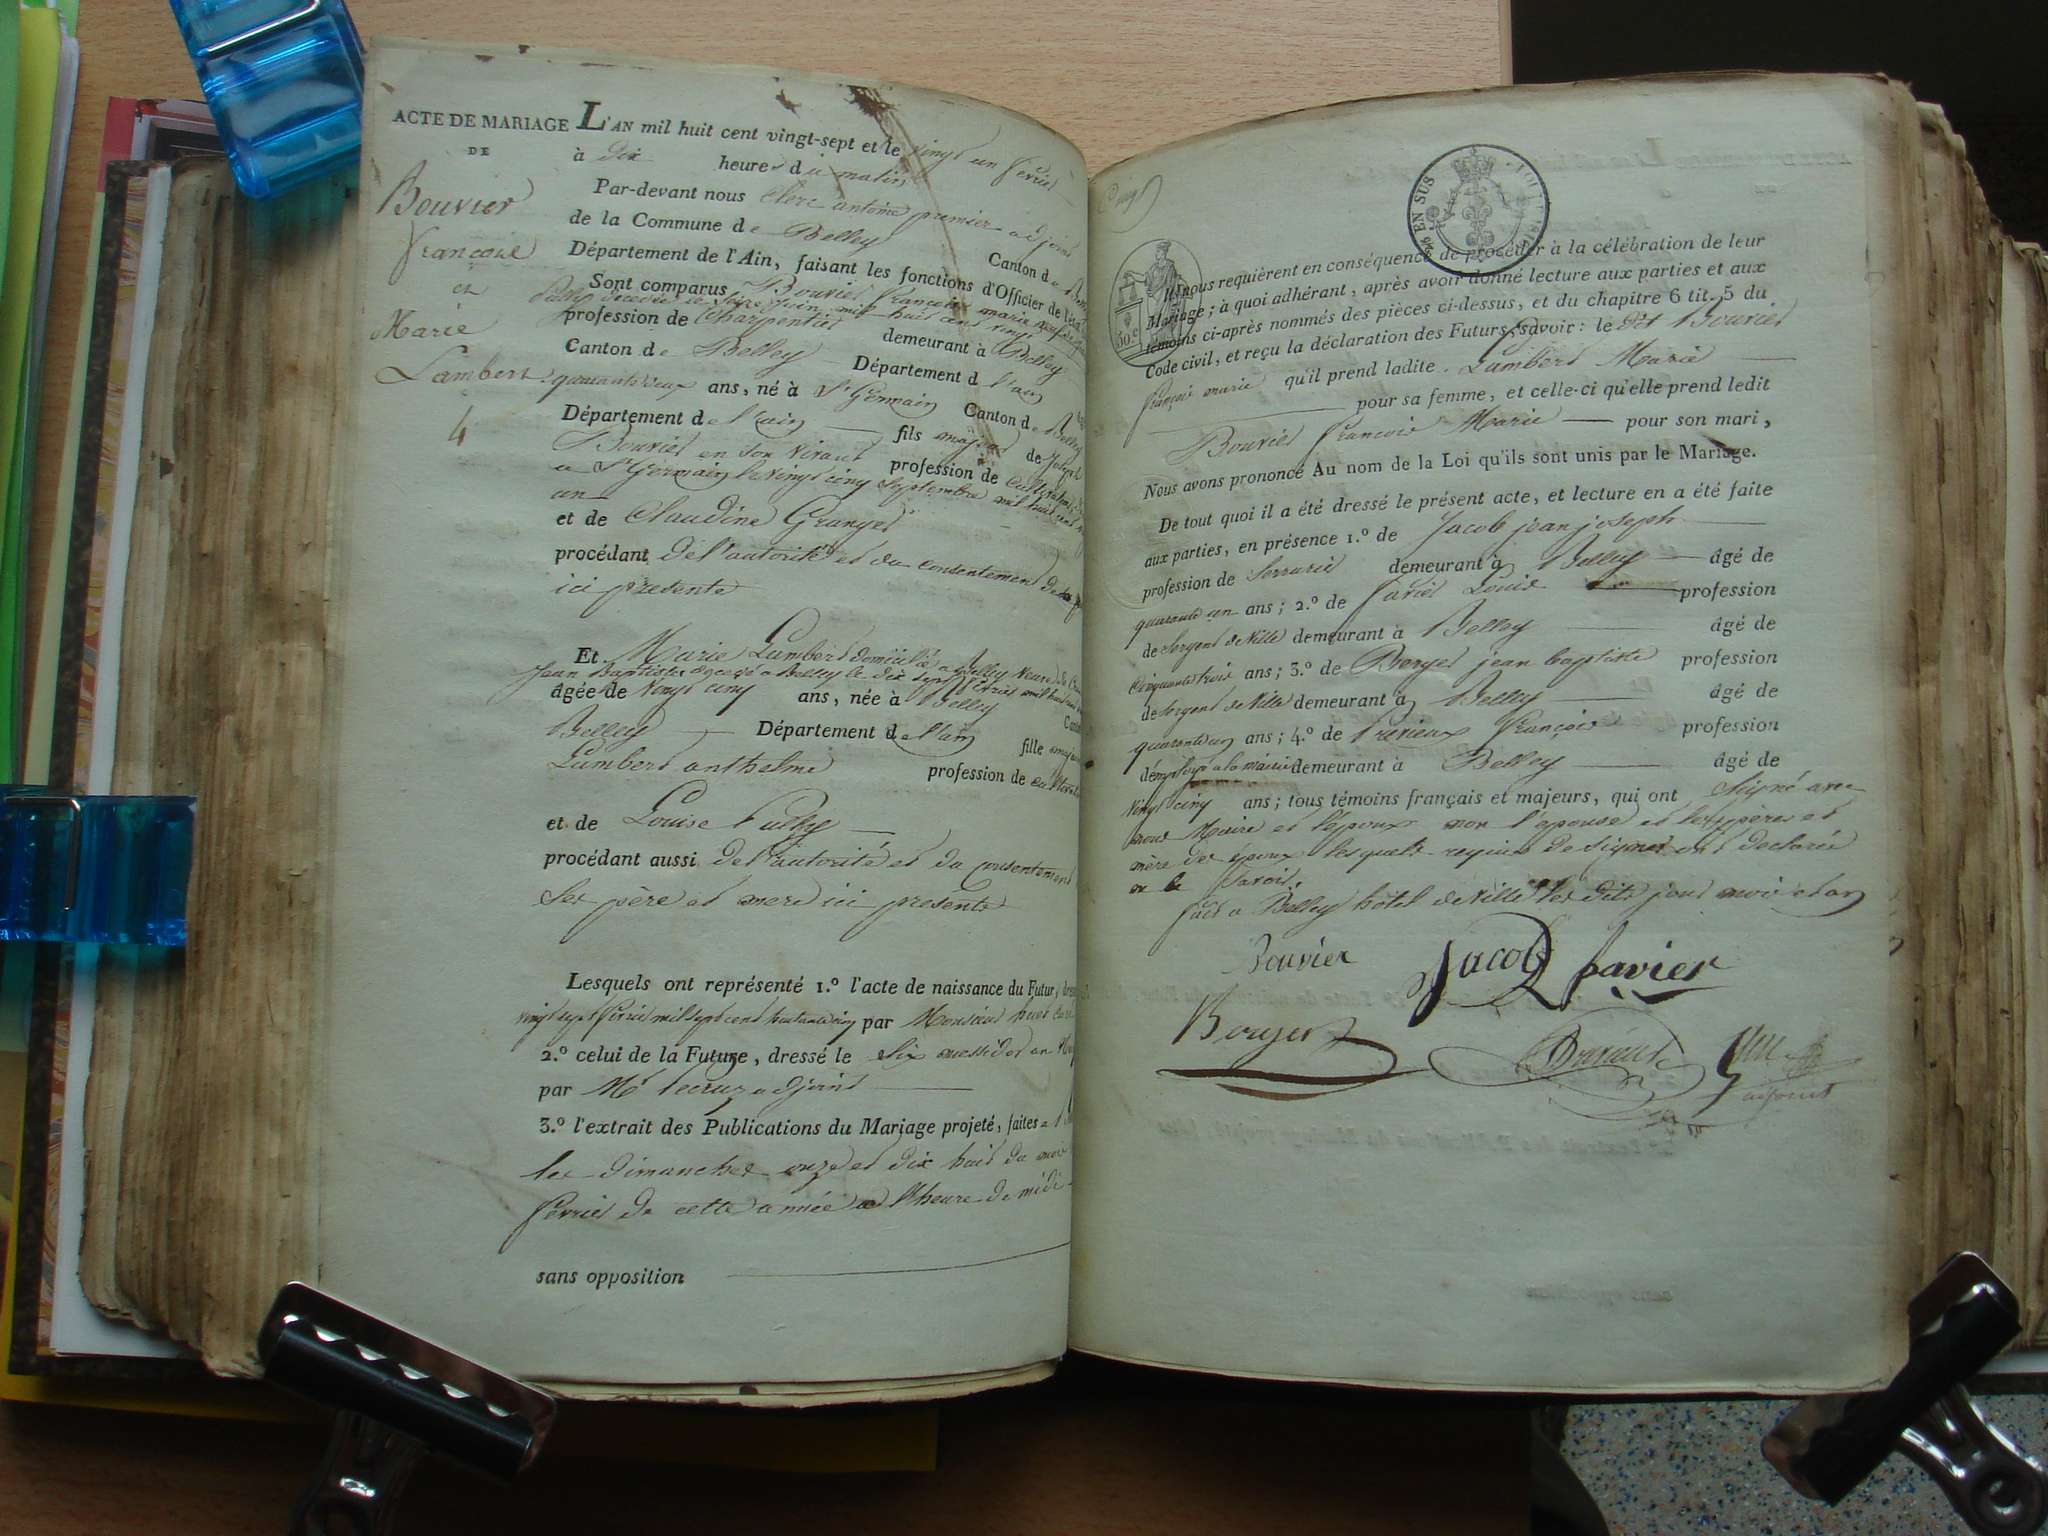 ACTE DE MARIAGE
DE
Bouvier
françois
et
Marie
Lambert
4
L'AN mil huit cent vingt-sept et le vingt un fevrier
à dix heures du matin
Par-devant nous Clerc antoine premier adjoint
de la Commune de Belley Canton de
Département de l'Ain, faisant les fonctions d'Officier de l'état
Sont comparus Bouvier francois marie veuf de
decedée le seize juin mil huit cent vingt
profession de Charpentier demeurant à Belley
Canton de Belley Département de l'ain
quarante deux ans, né à St Germain Canton de Belley
Département de l'ain fils majeur de Joseph
Bouvier en son vivant profession de Cultivateur
a St Germain le vingt cinq septembre mil huit cent
un
et de Claudine Granger
procédant de l'autorité et du consentement de sa
ici presente
Et Marie Lambert domiciliée a Belley Veuve de
Jean Baptiste decedé a Belley le dix sept fevrier mil huit cent
âgée de vingt cinq ans, née à Belley
Belley Département de l'ain fille majeure
Lambert anthelme profession de cultivateur
et de Louise
procédant aussi de l'autorité et du consentement
ses père et mere ici presents
Lesquels ont représenté 1.º l'acte de naissance du Futur,
vingt sept fevrier mil sept cent huitante cinq par Monsieur
2.º celui de la Future, dressé le six messidor an
par Mr adjoint
3.º l'extrait des Publications du Mariage projeté, faites a
les dimanches onze et dix huit du mois
fevrier de cette année a l'heure de midi
sans opposition
EN SUS
30.c
Ils nous requièrent en conséquence de procéder à la célébration de leur
Mariage; à quoi adhérant, après avoir donné lecture aux parties et aux
témoins ci-après nommés des pièces ci-dessus, et du chapitre 6 tit. 5 du
Code civil, et reçu la déclaration des Futurs, savoir: le dit Bouvier
françois marie qu'il prend ladite Lambert Marie
pour sa femme, et celle-ci qu'elle prend ledit
Bouvier francois Marie pour son mari,
Nous avons prononcé Au nom de la Loi qu'ils sont unis par le Mariage.
De tout quoi il a été dressé le présent acte, et lecture en a été faite
aux parties, en présence 1.º de Jacob jean joseph
profession de Serrurier demeurant à Belley âgé de
quarante un ans; 2.º de Favier Louis profession
de Sergent de Ville demeurant à Belley âgé de
cinquante trois ans; 3.º de Berger jean baptiste profession
de Sergent de Ville demeurant à Belley âgé de
quarante un ans; 4.º de Prerieux François profession
d'employé a la mairie demeurant à Belley âgé de
vingt cinq ans; tous témoins français et majeurs, qui ont signé avec
nous Maire et l'époux non l'epouse et les pères et
mère des époux lesquels requis de signer ont declarée
ne le savoir.
fait a Belley hôtel de Ville les dits jour mois et an
Bouvier Jacob favier
Berger Prerieux
adjoint